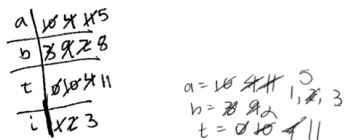 a | 10 4 11 5
b | 3 9 2 8
t | 0 10 4 11
i | 1 2 3
a = 10 4 11 5
1, 2, 3
b = 3 9 2
t = 0 10 4 11